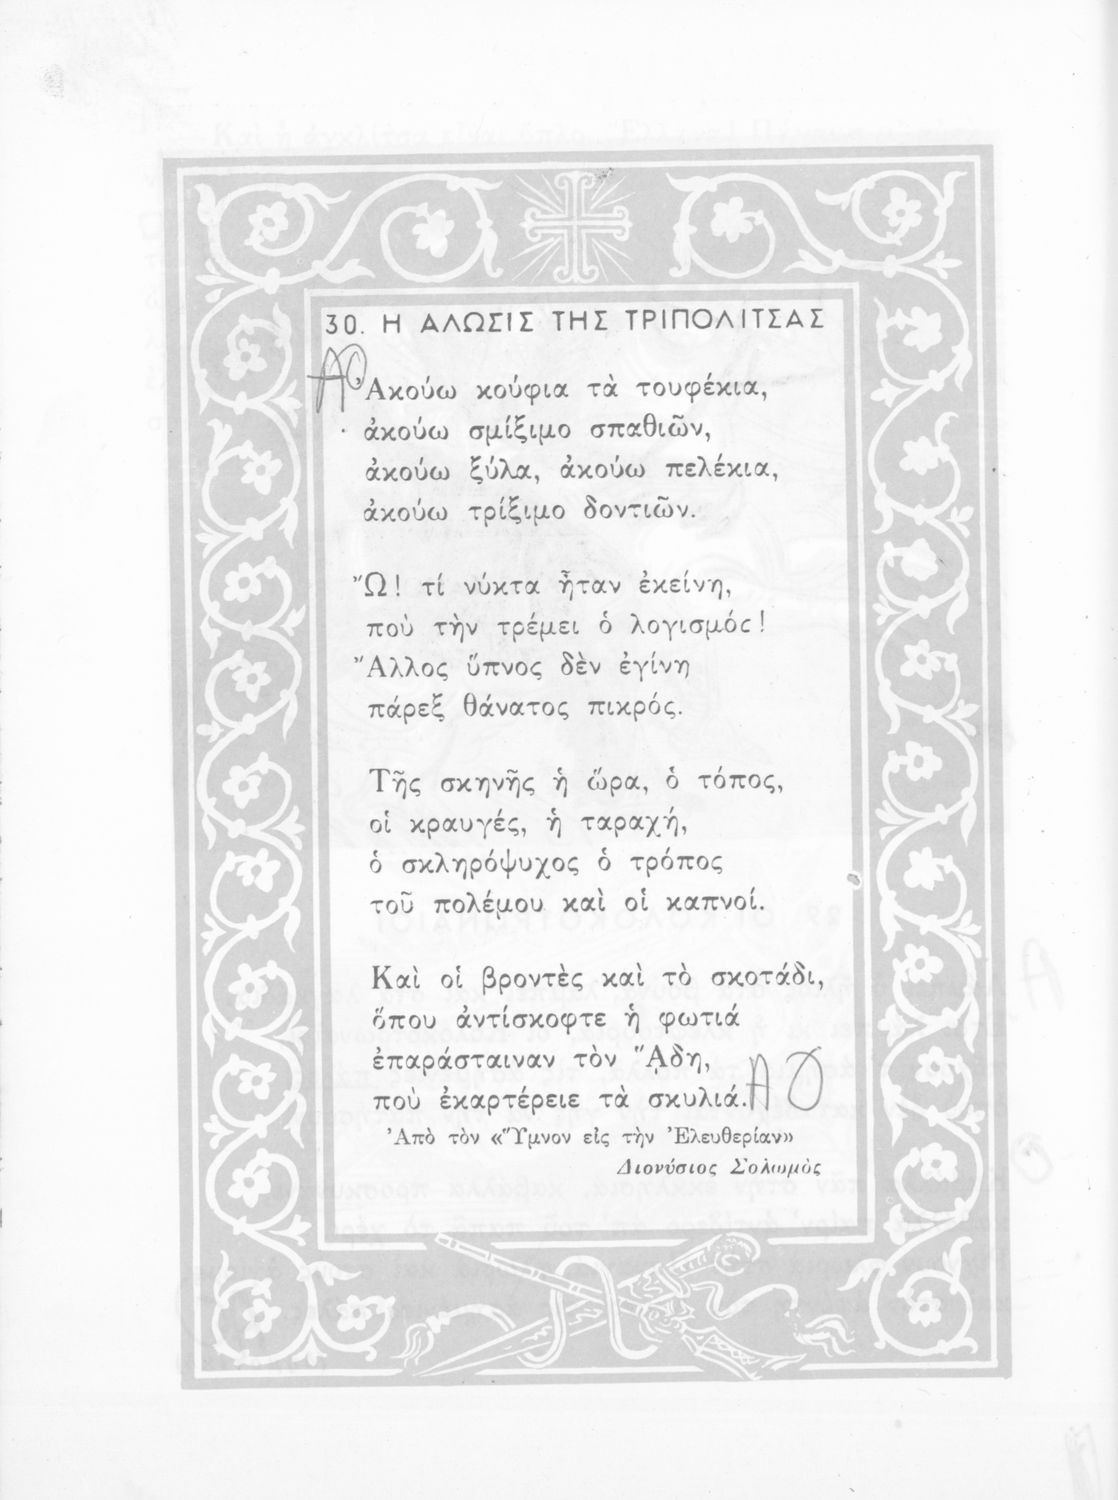 30. Η ΑΛΩΣΙΣ ΤΗΣ ΤΡΙΠΟΛΙΤΣΑΣ
Ἀκούω κούφια τὰ τουφέκια,
ἀκούω σμίξιμο σπαθιῶν,
ἀκούω ξύλα, ἀκούω πελέκια,
ἀκούω τρίξιμο δοντιῶν.
Ὤ! τί νύκτα ἦταν ἐκείνη,
ποὺ τὴν τρέμει ὁ λογισμός!
Ἄλλος ὕπνος δὲν ἐγίνη
πάρεξ θάνατος πικρός.
Τῆς σκηνῆς ἡ ὥρα, ὁ τόπος,
οἱ κραυγές, ἡ ταραχή,
ὁ σκληρόψυχος ὁ τρόπος
τοῦ πολέμου καὶ οἱ καπνοί.
Καὶ οἱ βροντὲς καὶ τὸ σκοτάδι,
ὅπου ἀντίσκοφτε ἡ φωτιά
ἐπαράσταιναν τὸν ᾍδη,
ποὺ ἐκαρτέρειε τὰ σκυλιά.
Ἀπὸ τὸν «Ὕμνον εἰς τὴν Ἐλευθερίαν»
Διονύσιος Σολωμὸς